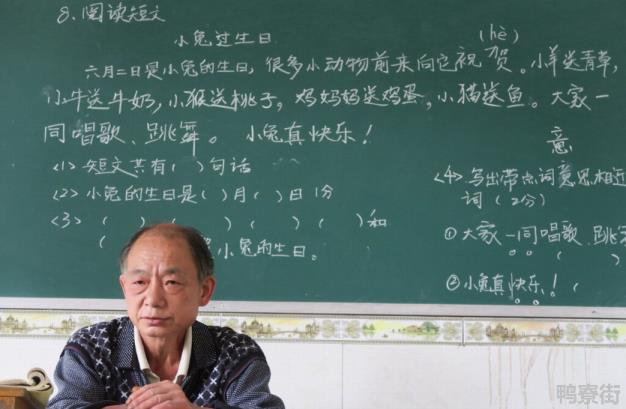 8、阅读短文
小兔过生日
(hè)
六月二日是小兔的生日，很多小动物前来向它祝贺。小羊送青草，
小牛送牛奶，小猴送桃子，鸡妈妈送鸡蛋，小猫送鱼。大家一
同唱歌、跳舞。小兔真快乐！
<1> 短文共有（ ）句话
<2> 小兔的生日是（ ）月（ ）日 1分
<3>（ ）（ ）（ ）（ ）（ ）和
（ 小兔的生日。
意
<4>、写出带点词意思相近
词（2分）
①大家一同唱歌、跳
（ ）
②小兔真快乐！（
鸭寮街